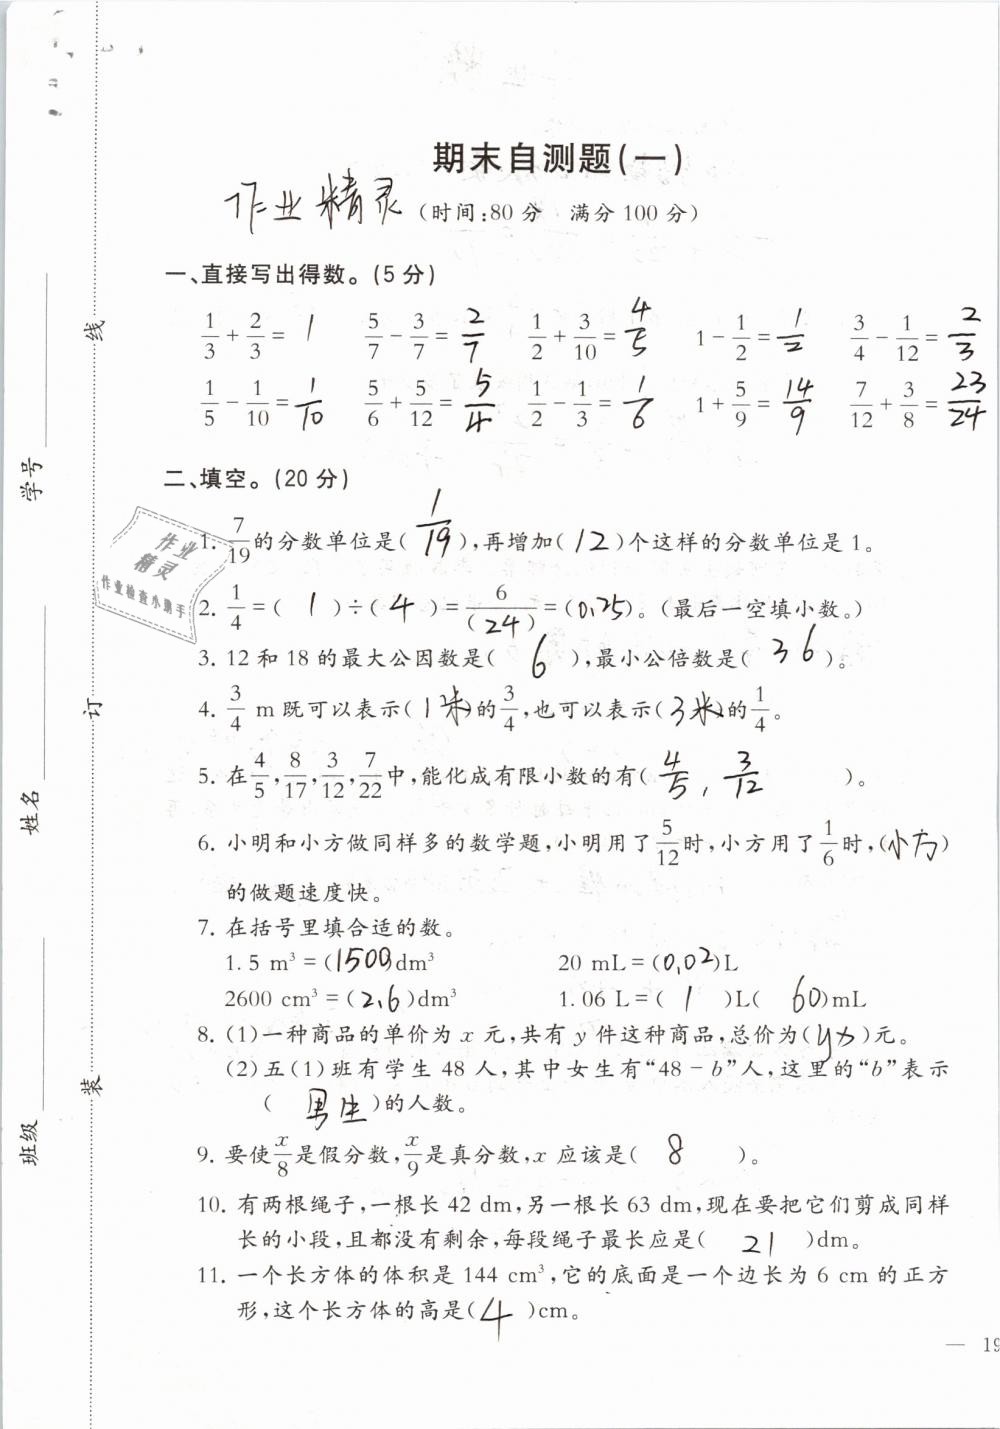 期末自测题(一)
作业精灵 (时间:80分 满分100分)
一、直接写出得数。(5分)
1/3+2/3=1 5/7-3/7=2/7 1/2+3/10=4/5 1-1/2=1/2 3/4-1/12=2/3
1/5-1/10=1/10 5/6+5/12=5/4 1/2-1/3=1/6 1+5/9=14/9 7/12+3/8=23/24
二、填空。(20分)
1. 7/19的分数单位是(1/19),再增加(12)个这样的分数单位是1。
2. 1/4=(1)÷(4)=6/(24)=(0.25)。(最后一空填小数。)
3. 12和18的最大公因数是(6),最小公倍数是(36)。
4. 3/4 m既可以表示(1米)的3/4,也可以表示(3米)的1/4。
5. 在4/5,8/17,3/12,7/22中,能化成有限小数的有(4/5,3/12)。
6. 小明和小方做同样多的数学题,小明用了5/12时,小方用了1/6时,(小方)
的做题速度快。
7. 在括号里填合适的数。
1.5 m³=(1500)dm³ 20 mL=(0.02)L
2600 cm³=(2.6)dm³ 1.06 L=(1)L(60)mL
8. (1)一种商品的单价为x元,共有y件这种商品,总价为(yx)元。
(2)五(1)班有学生48人,其中女生有“48-b”人,这里的“b”表示
(男生)的人数。
9. 要使x/8是假分数,x/9是真分数,x应该是(8)。
10. 有两根绳子,一根长42 dm,另一根长63 dm,现在要把它们剪成同样
长的小段,且都没有剩余,每段绳子最长应是(21)dm。
11. 一个长方体的体积是144 cm³,它的底面是一个边长为6 cm的正方
形,这个长方体的高是(4)cm。
— 19
作业
精灵
作业检查小助手
线
学号
订
姓名
装
班级